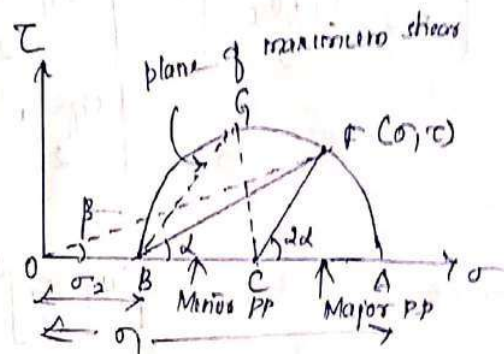 τ
plane of maximum shear
G
F (σ, τ)
β
α
2α
O
σ₃
B
C
A
σ
Minor PP
Major PP
σ₁